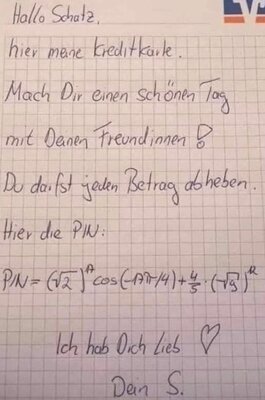 Hallo Schatz,
hier meine Kreditkarte.
Mach Dir einen schönen Tag
mit Deinen Freundinnen!
Du darfst jeden Betrag abheben.
Hier die PIN:
PIN = (√2)^17 cos(-17π/4) + 4/5 · (-√5)^12
Ich hab Dich Lieb ♡
Dein S.